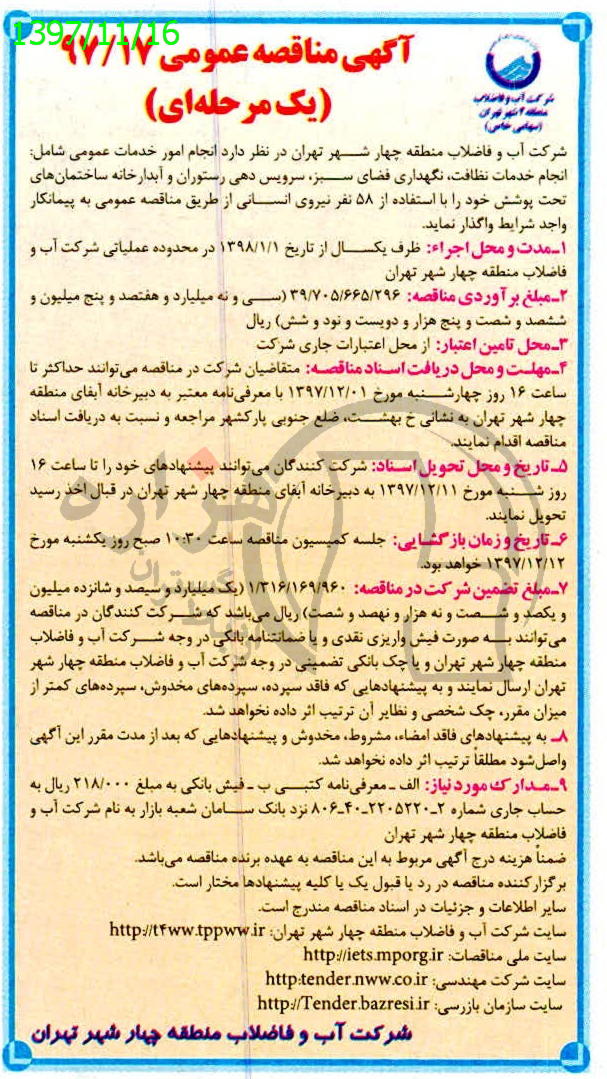 1397/11/16
آگهی مناقصه عمومی ۹۷/۱۷
(یک مرحله‌ای)
شرکت آب و فاضلاب
منطقه ۴ شهر تهران
(سهامی خاص)
شرکت آب و فاضلاب منطقه چهار شهر تهران در نظر دارد انجام امور خدمات عمومی شامل:
انجام خدمات نظافت، نگهداری فضای سبز، سرویس دهی رستوران و آبدارخانه ساختمان‌های
تحت پوشش خود را با استفاده از ۵۸ نفر نیروی انسانی از طریق مناقصه عمومی به پیمانکار
واجد شرایط واگذار نماید.
۱ـ مدت و محل اجراء: ظرف یکسال از تاریخ ۱۳۹۸/۱/۱ در محدوده عملیاتی شرکت آب و
فاضلاب منطقه چهار شهر تهران
۲ـ مبلغ برآوردی مناقصه: ۳۹/۷۰۵/۶۶۵/۲۹۶ (سی و نه میلیارد و هفتصد و پنج میلیون و
ششصد و شصت و پنج هزار و دویست و نود و شش) ریال
۳ـ محل تامین اعتبار: از محل اعتبارات جاری شرکت
۴ـ مهلت و محل دریافت اسناد مناقصه: متقاضیان شرکت در مناقصه می‌توانند حداکثر تا
ساعت ۱۶ روز چهارشنبه مورخ ۱۳۹۷/۱۲/۰۱ با معرفی‌نامه معتبر به دبیرخانه آبفای منطقه
چهار شهر تهران به نشانی خ بهشت، ضلع جنوبی پارکشهر مراجعه و نسبت به دریافت اسناد
مناقصه اقدام نمایند.
۵ـ تاریخ و محل تحویل اسناد: شرکت کنندگان می‌توانند پیشنهادهای خود را تا ساعت ۱۶
روز شنبه مورخ ۱۳۹۷/۱۲/۱۱ به دبیرخانه آبفای منطقه چهار شهر تهران در قبال اخذ رسید
تحویل نمایند.
۶ـ تاریخ و زمان بازگشایی: جلسه کمیسیون مناقصه ساعت ۱۰:۳۰ صبح روز یکشنبه مورخ
۱۳۹۷/۱۲/۱۲ خواهد بود.
۷ـ مبلغ تضمین شرکت در مناقصه: ۱/۳۱۶/۱۶۹/۹۶۰ (یک میلیارد و سیصد و شانزده میلیون
و یکصد و شصت و نه هزار و نهصد و شصت) ریال می‌باشد که شرکت کنندگان در مناقصه
می‌توانند به صورت فیش واریزی نقدی و یا ضمانتنامه بانکی در وجه شرکت آب و فاضلاب
منطقه چهار شهر تهران و یا چک بانکی تضمینی در وجه شرکت آب و فاضلاب منطقه چهار شهر
تهران ارسال نمایند و به پیشنهادهایی که فاقد سپرده، سپرده‌های مخدوش، سپرده‌های کمتر از
میزان مقرر، چک شخصی و نظایر آن ترتیب اثر داده نخواهد شد.
۸ـ به پیشنهادهای فاقد امضاء، مشروط، مخدوش و پیشنهادهایی که بعد از مدت مقرر این آگهی
واصل شود مطلقاً ترتیب اثر داده نخواهد شد.
۹ـ مدارک مورد نیاز: الف ـ معرفی‌نامه کتبی ب ـ فیش بانکی به مبلغ ۲۱۸/۰۰۰ ریال به
حساب جاری شماره ۲ـ۲۲۰۵۲۲۰ـ۴۰ـ۸۰۶ نزد بانک سامان شعبه بازار به نام شرکت آب و
فاضلاب منطقه چهار شهر تهران
ضمناً هزینه درج آگهی مربوط به این مناقصه به عهده برنده مناقصه می‌باشد.
برگزارکننده مناقصه در رد یا قبول یک یا کلیه پیشنهادها مختار است.
سایر اطلاعات و جزئیات در اسناد مناقصه مندرج است.
سایت شرکت آب و فاضلاب منطقه چهار شهر تهران: http://t۴ww.tppww.ir
سایت ملی مناقصات: http://iets.mporg.ir
سایت شرکت مهندسی: http:tender.nww.co.ir
سایت سازمان بازرسی: http://Tender.bazresi.ir
شرکت آب و فاضلاب منطقه چهار شهر تهران
هزاره